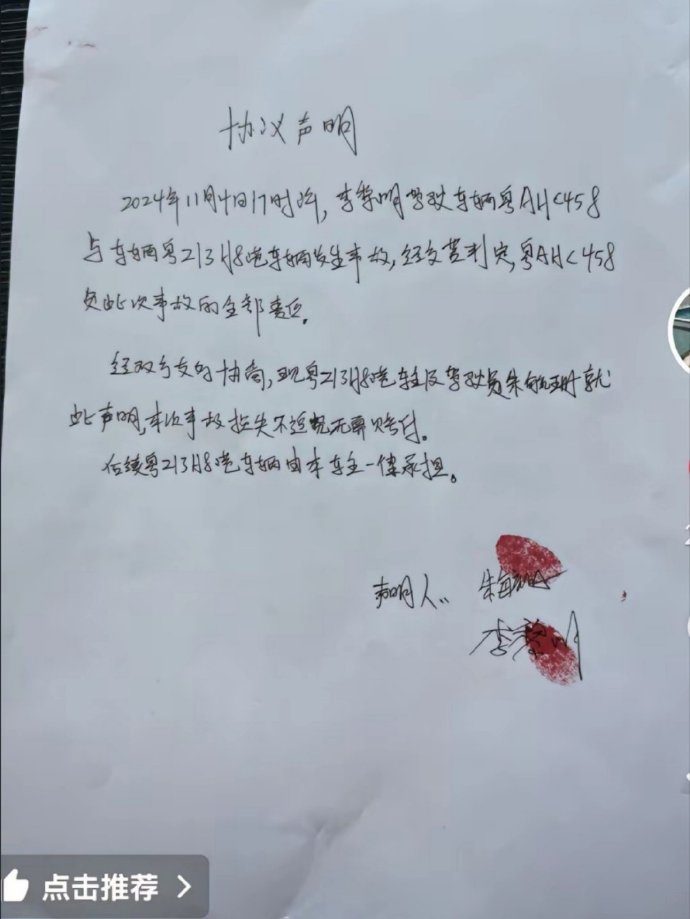 协议声明
2024年11月4日17时许，李黎明驾驶车辆粤AH<458
与车辆粤Z13H8港车辆发生事故，经交警判定，粤AH<458
负此次事故的全部责任。
经双方友好协商，现粤Z13H8港车主及驾驶员朱就
此声明，本次事故损失不追究无需赔付。
后续粤Z13H8港车辆由本车主一律承担。
声明人：朱
李黎明
点击推荐 >